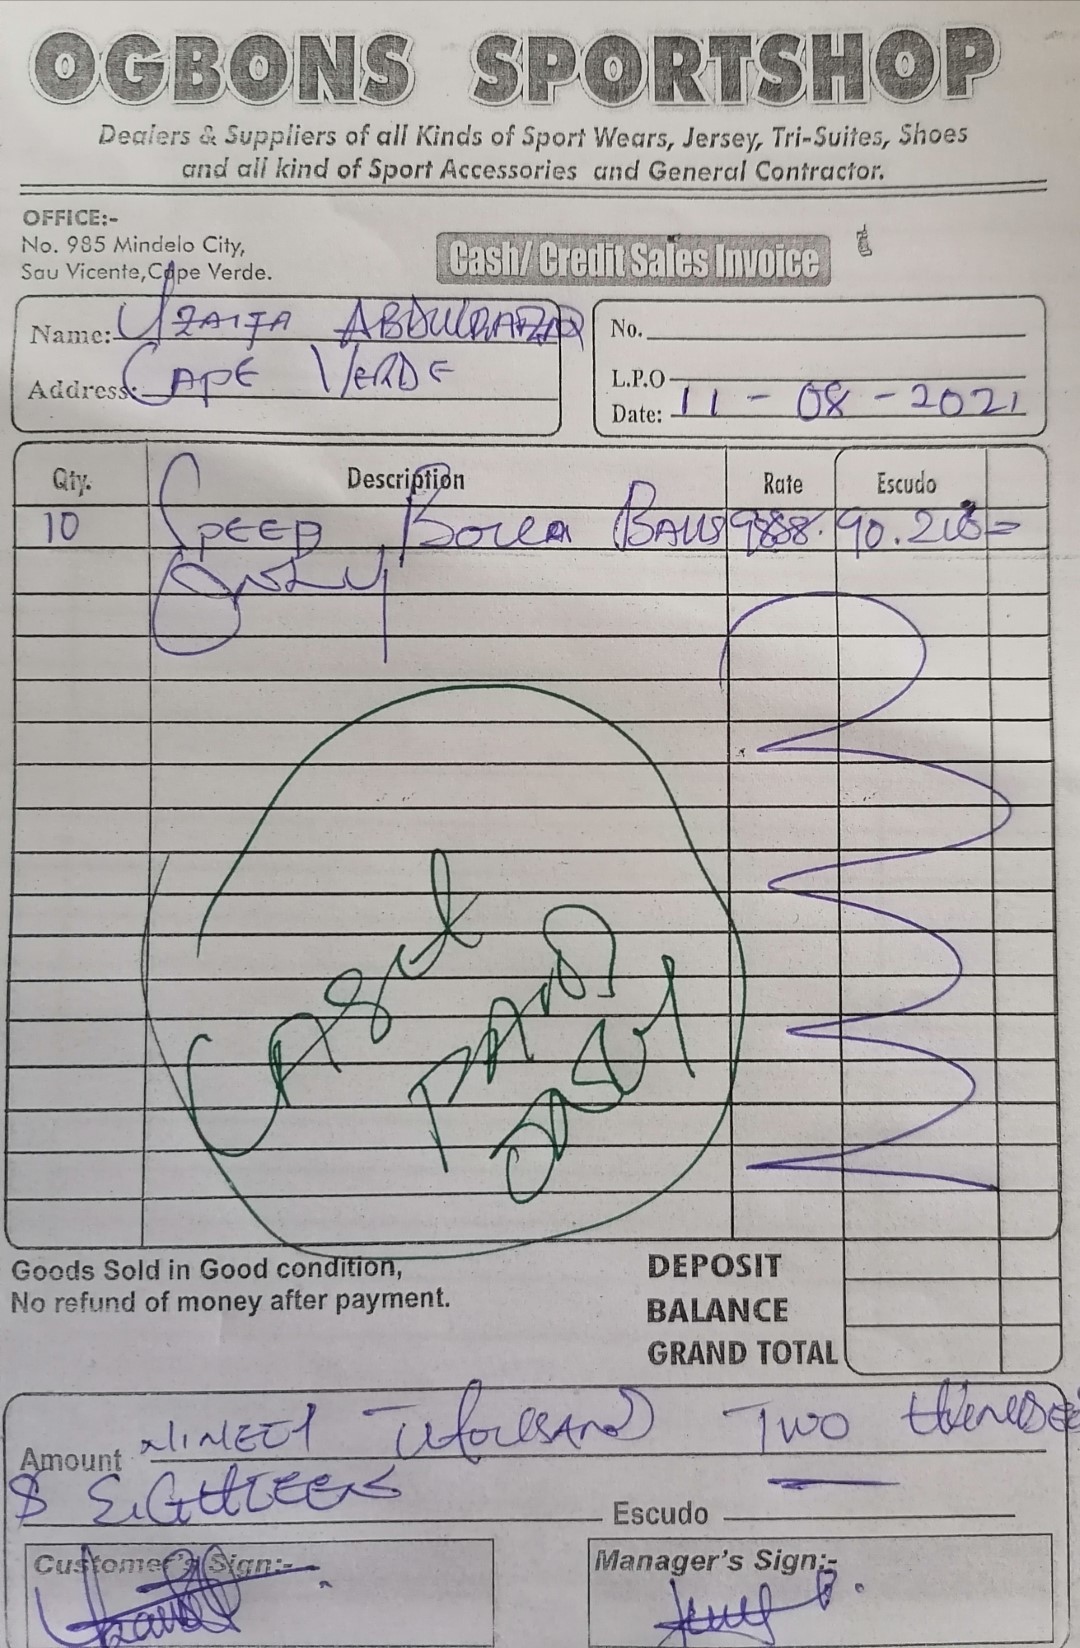 OGBONS SPORTSHOP
Dealers & Suppliers of all Kinds of Sport Wears, Jersey, Tri-Suites, Shoes
and all kind of Sport Accessories and General Contractor.
OFFICE:-
No. 985 Mindelo City,
Sau Vicente, Cape Verde.
Cash/ Credit Sales Invoice
Name: UZAIFA ABDULRAZAQ
Address: CAPE VERDE
No.
L.P.O
Date: 11-08-2021
Qty. Description Rate Escudo
10 SPEED BALLS 90.218=
ONLY
CASH
PAID
ONLY
Goods Sold in Good condition,
No refund of money after payment.
DEPOSIT
BALANCE
GRAND TOTAL
Amount NINETY THOUSAND TWO HUNDRED
& EIGHTEEN Escudo
Customer's Sign:-
Manager's Sign:-